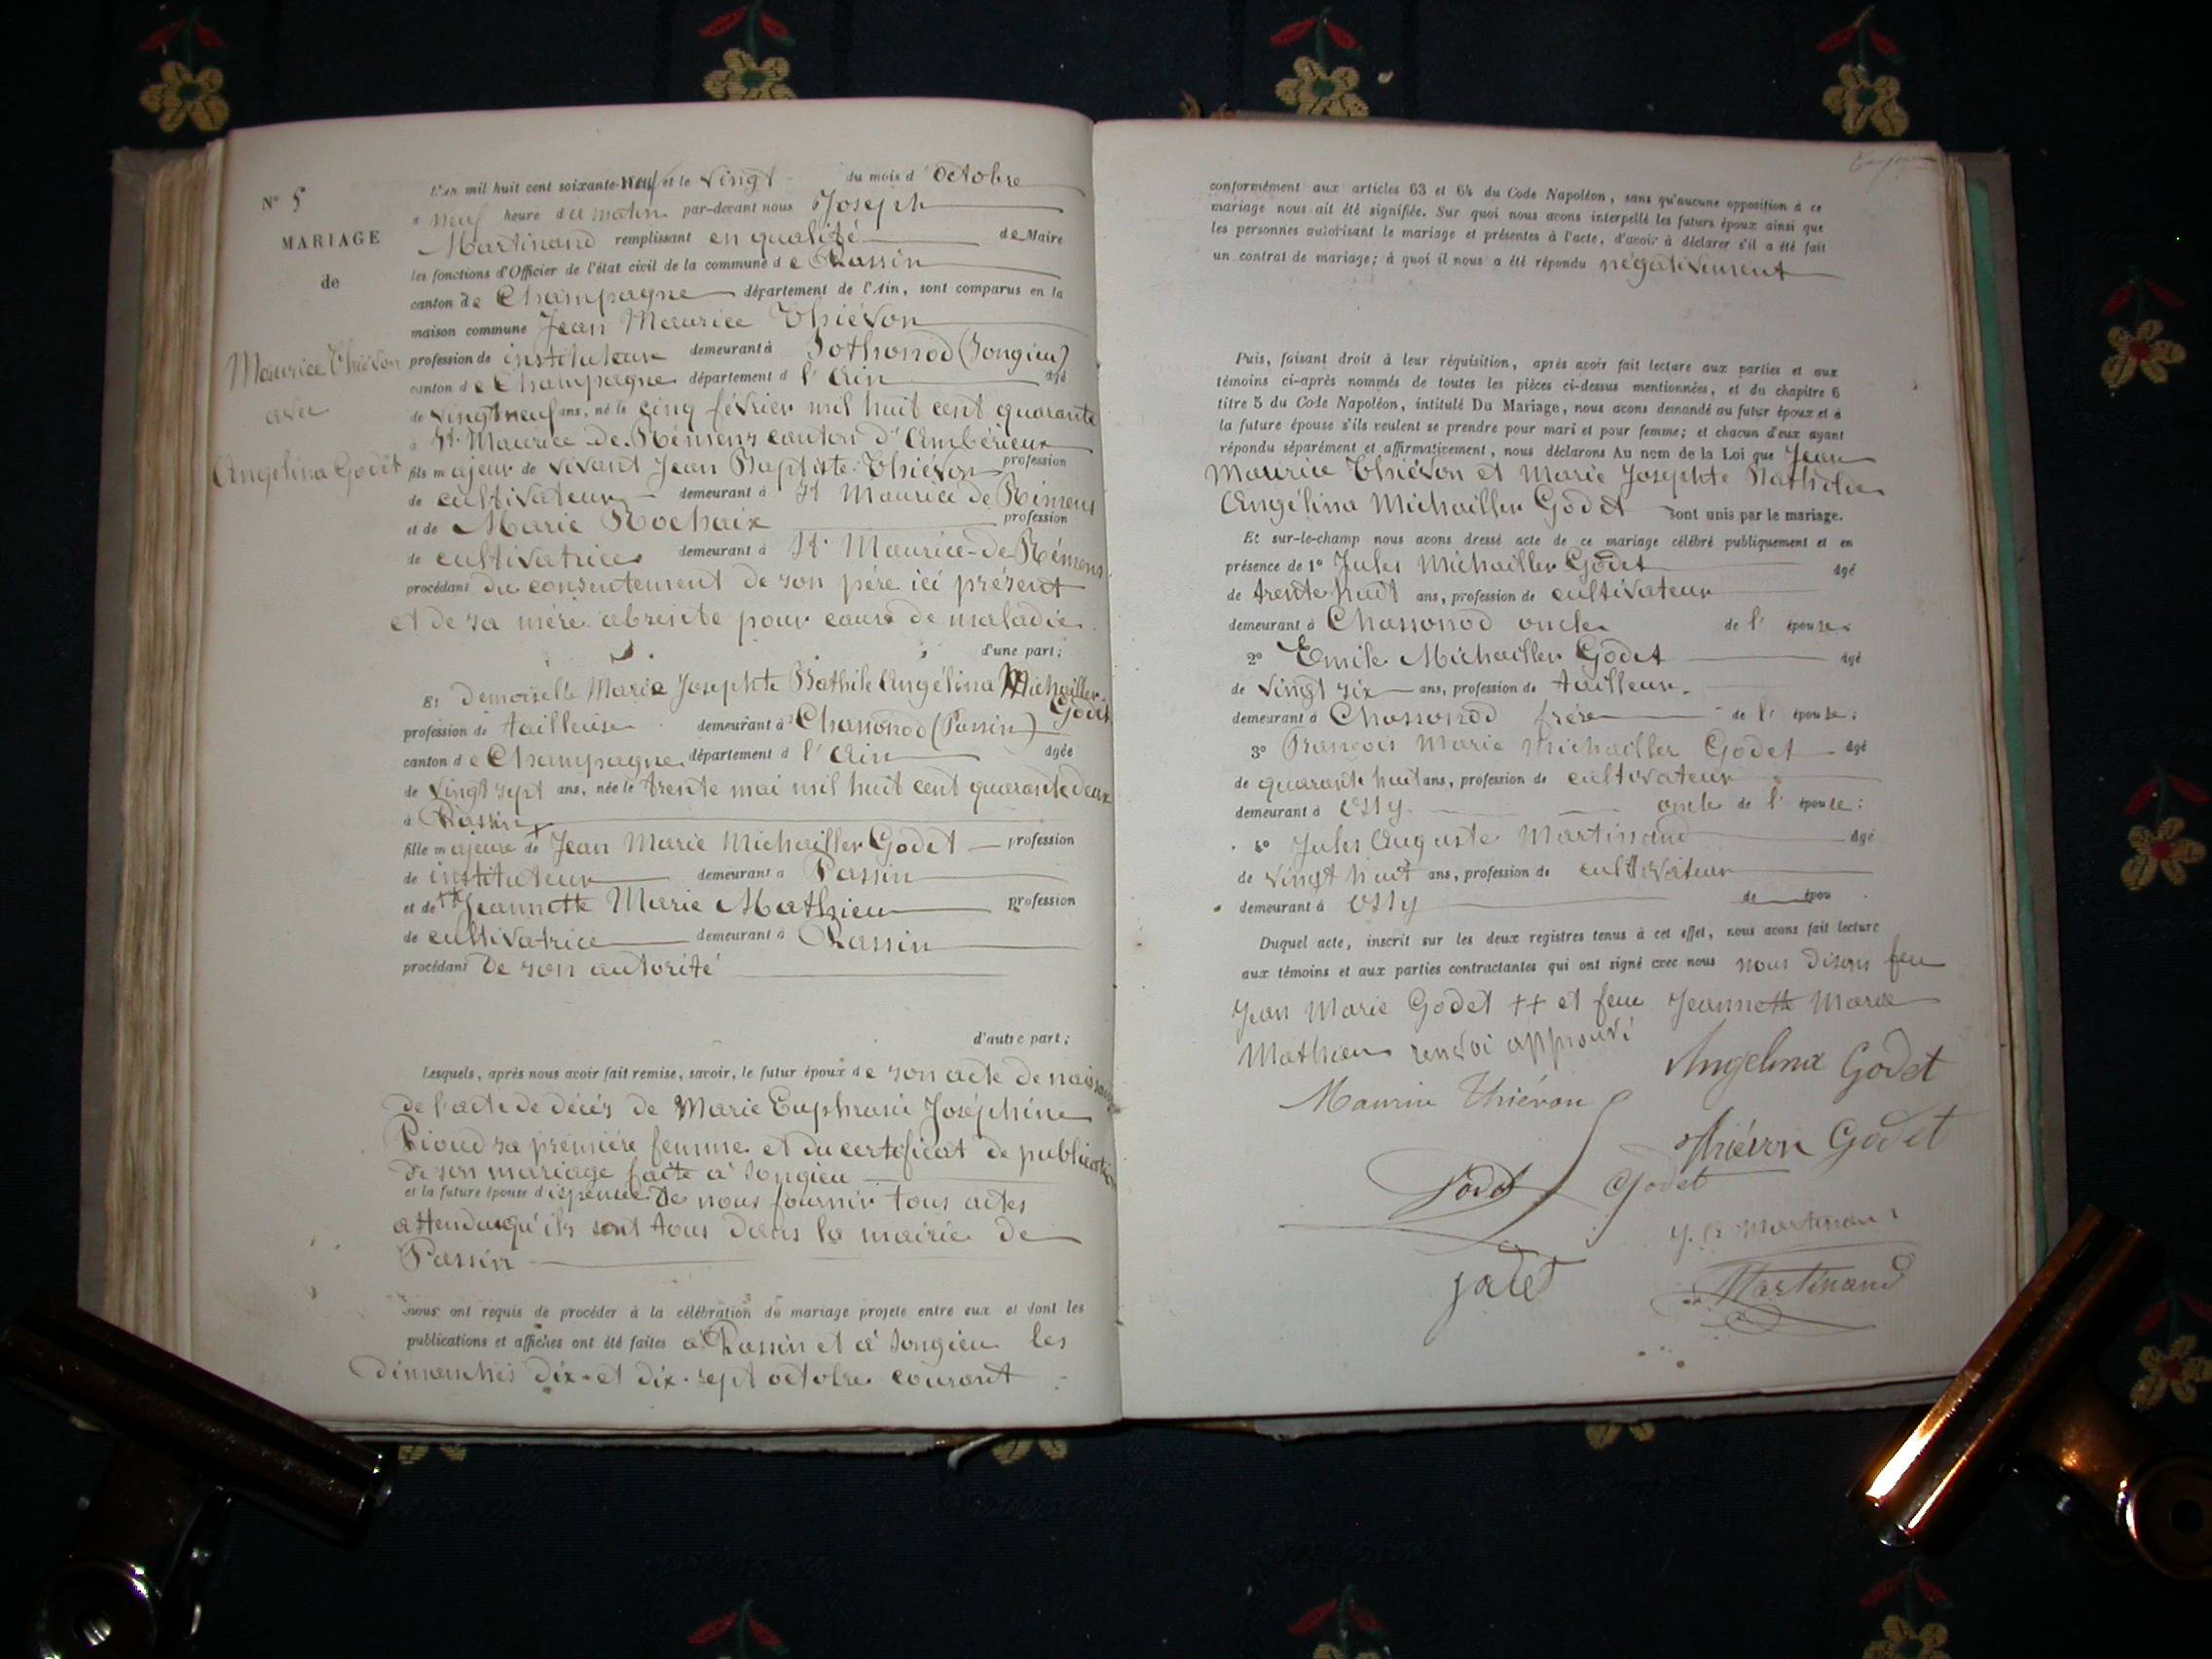 N° 5
MARIAGE
de
Maurice Thiévon
avec
Angelina Godet
L'an mil huit cent soixante-neuf et le vingt du mois d'octobre
à neuf heure du matin par-devant nous Joseph
Martinand remplissant en qualité de Maire
les fonctions d'Officier de l'état civil de la commune de Passin
canton de Champagne département de l'Ain, sont comparus en la
maison commune Jean Maurice Thiévon
profession de instituteur demeurant à Sothonod (Songieu)
canton de Champagne département d l'Ain âgé
de vingt neuf ans, né le cinq février mil huit cent quarante
à St Maurice de Rémens canton d'Ambérieux
fils majeur de vivant Jean Baptiste Thiévon profession
de cultivateur demeurant à St Maurice de Rémens
et de Marie Rochaix profession
de cultivatrice demeurant à St Maurice-de Rémens
procédant du consentement de son père ici présent
et de sa mère absente pour cause de maladie
d'une part;
Et demoiselle Marie Josephte Bathile Angélina Michailler
Godet
profession de tailleuse demeurant à Chassonod (Passin)
canton de Champagne département d l'Ain âgée
de vingt sept ans, née le trente mai mil huit cent quarante deux
à Passin
fille majeure de Jean Marie Michailler Godet profession
de instituteur demeurant à Passin
et de ++ Jeannette Marie Mathieu profession
de cultivatrice demeurant à Passin
procédant de son autorité
d'autre part;
Lesquels, après nous avoir fait remise, savoir, le futur époux de son acte de naissance
de l'acte de décès de Marie Euphrasie Joséphine
Pioud sa première femme et du certificat de publication
de son mariage faite à Songieu
et la future épouse dispensée de nous fournir tous actes
attendu qu'ils sont tous dans la mairie de
Passin
nous ont requis de procéder à la célébration du mariage projeté entre eux et dont les
publications et affiches ont été faites à Passin et à Songieu les
dimanches dix et dix-sept octobre courant
conformément aux articles 63 et 64 du Code Napoléon, sans qu'aucune opposition à ce
mariage nous ait été signifiée. Sur quoi nous avons interpellé les futurs époux ainsi que
les personnes autorisant le mariage et présentes à l'acte, d'avoir à déclarer s'il a été fait
un contrat de mariage; à quoi il nous a été répondu négativement
Puis, faisant droit à leur réquisition, après avoir fait lecture aux parties et aux
témoins ci-après nommés de toutes les pièces ci-dessus mentionnées, et du chapitre 6
titre 5 du Code Napoléon, intitulé Du Mariage, nous avons demandé au futur époux et à
la future épouse s'ils veulent se prendre pour mari et pour femme; et chacun d'eux ayant
répondu séparément et affirmativement, nous déclarons Au nom de la Loi que Jean
Maurice Thiévon et Marie Josephte Bathilde
Angélina Michailler Godet sont unis par le mariage.
Et sur-le-champ nous avons dressé acte de ce mariage célébré publiquement et en
présence de 1° Jules Michailler Godet âgé
de trente huit ans, profession de cultivateur
demeurant à Chassonod oncle de l'épouse
2° Emile Michailler Godet âgé
de vingt six ans, profession de tailleur
demeurant à Chassonod frère de l'épouse;
3° François Marie Michailler Godet âgé
de quarante huit ans, profession de cultivateur
demeurant à Ossy oncle de l'épouse;
4° Jules Auguste Martinand âgé
de vingt huit ans, profession de cultivateur
demeurant à Ossy de épou
Duquel acte, inscrit sur les deux registres tenus à cet effet, nous avons fait lecture
aux témoins et aux parties contractantes qui ont signé avec nous nous disons feu
Jean Marie Godet ++ et feue Jeannette Marie
Mathieu renvoi approuvé
Angelina Godet
Maurice Thiévon
Thiévon Godet
Godet
Godet
J. A Martinand
Godet
Martinand